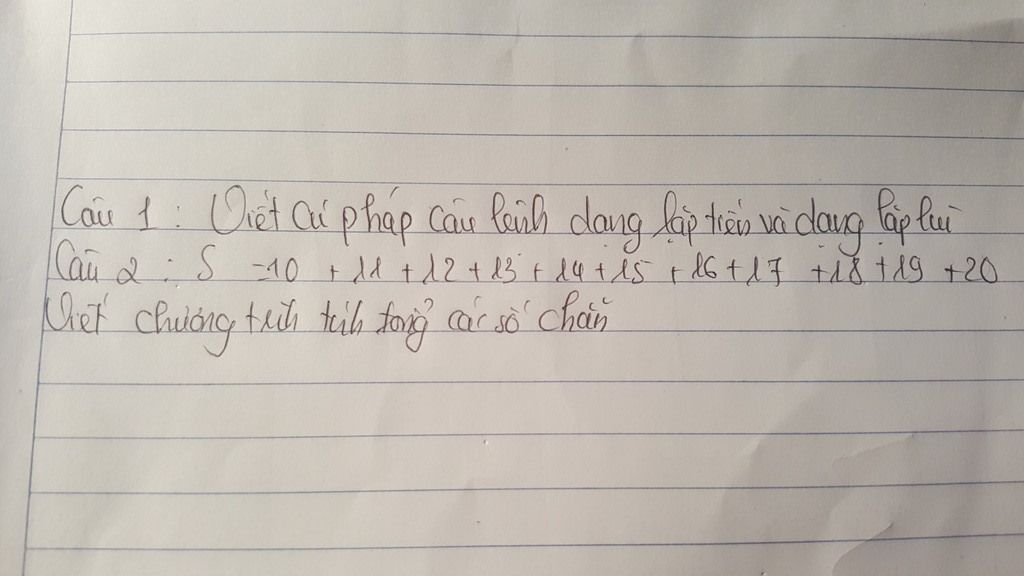 Câu 1 : Viết cú pháp câu lệnh dạng lặp tiến và dạng lặp lùi
Câu 2 : S =10 + 11 + 12 + 13 + 14 + 15 + 16 + 17 + 18 + 19 + 20
Viết chương trình tính tổng các số chẵn